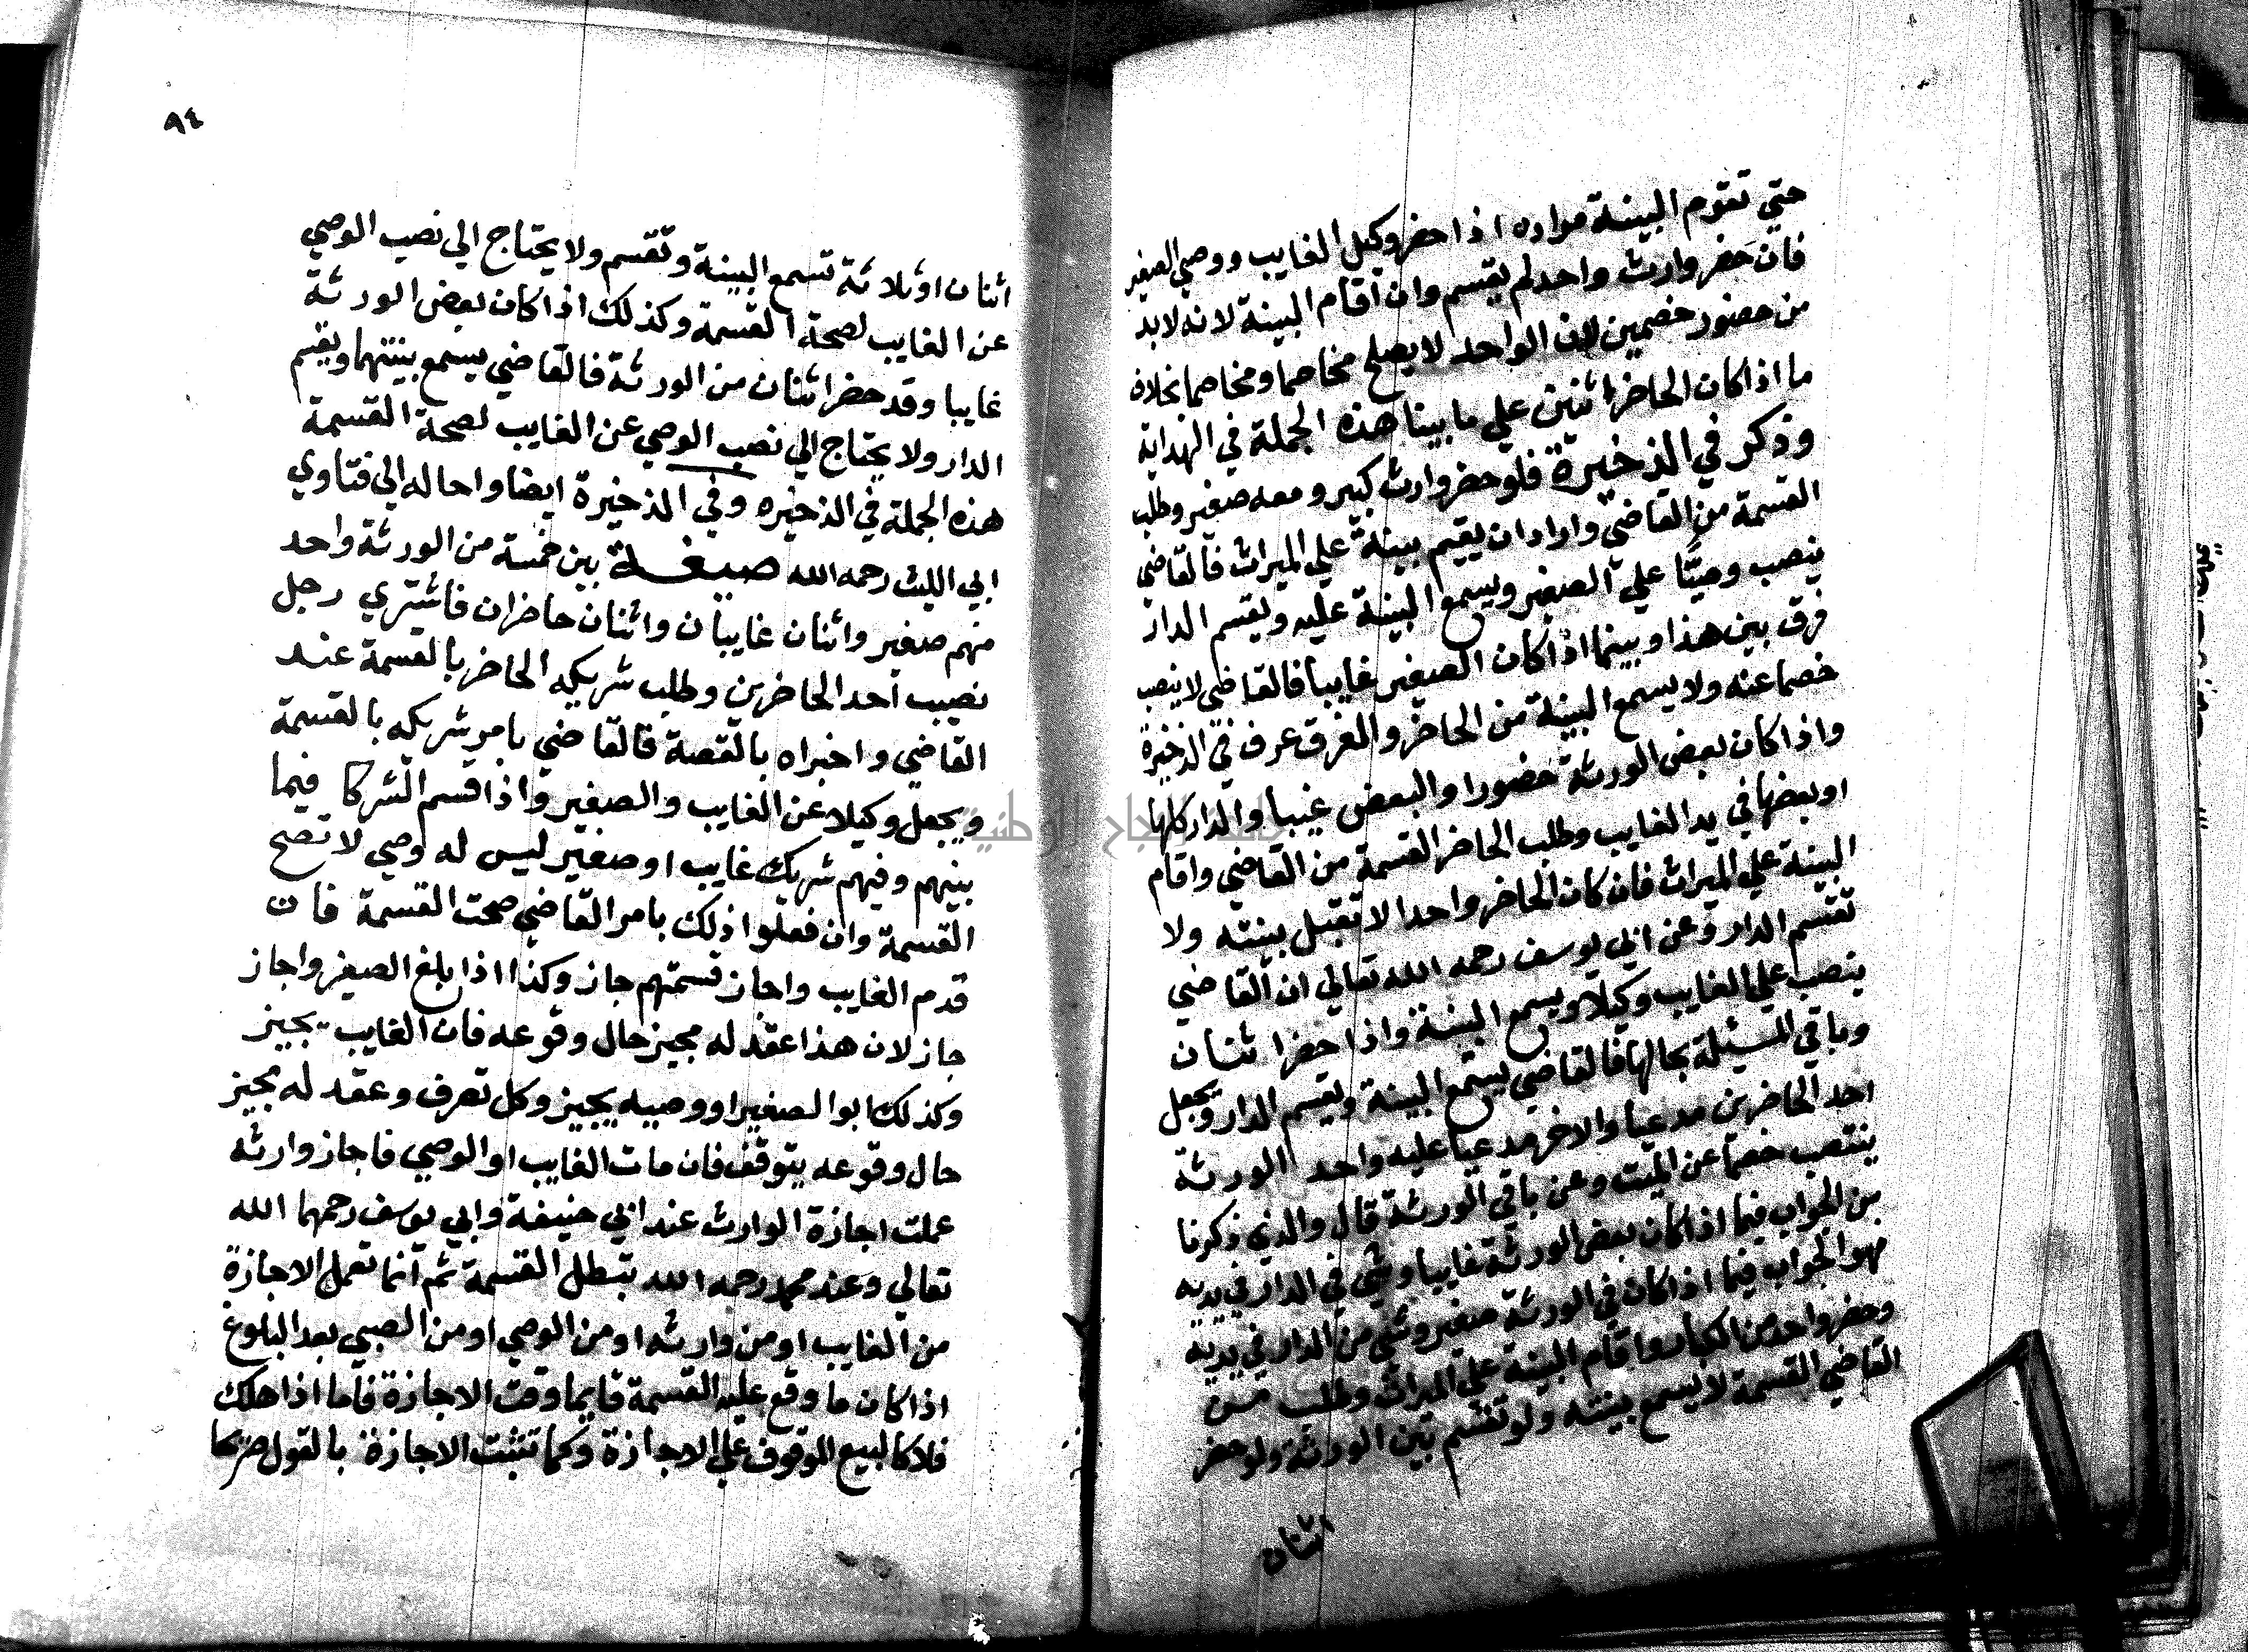 حتي تقوم البينة مراده اذا حضر وكيل الغايب ووصي الصغير
فان حضر وارث واحد لم يقسم وان اقام البينة لانه لابد
من حضور خصمين لان الواحد لا يصلح مخاصما ومخاصما بخلاف
ما اذا كان الحاضر اثنين علي ما بينا هذه الجملة في الهداية
وذكر في الذخيرة فلو حضر وارث كبير ومعه صغير وطلب
القسمة من القاضي واراد ان يقيم بينة علي الميراث فالقاضي
ينصب وصيًّا علي الصغير ويسمع البينة عليه ويقسم الدار
فرق بين هذا وبينما اذا كان الصغير غايبا فالقاضي لا ينصب
خصما عنه ولا يسمع البينة من الحاضر والفرق عرف في الذخيرة
واذا كان بعض الورثة حضورا والبعض غيبا والدار كلها
او بعضها في يد الغايب وطلب الحاضر القسمة من القاضي واقام
البينة علي الميراث فان كان الحاضر واحدا لا تقبل بينته ولا
تقسم الدار وعن ابي يوسف رحمه الله تعالي ان القاضي
ينصب علي الغايب وكيلا ويسمع البينة واذا حضر اثنان
وباقي المسئلة بحالها فالقاضي يسمع البينة ويقسم الدار ويجعل
احد الحاضرين مدعيا والاخر مدعيا عليه واحد الورثة
ينتصب خصما عن الميت وعن باقي الورثة قال والذي ذكرنا
من الجواب فيما اذا كان بعض الورثة غايبا وشي في الدار في يديه
فهو الجواب فيما اذا كان في الورثة صغير وشي من الدار في يديه
وحضر واحد من الكبار واقام البينة علي الميراث وطلب من
القاضي القسمة لا يسمع بينته ولو تقسم بين الورثة ولو حضر
اثنان
٩٤
اثنان او ثلاثة تسمع البينة وتقسم ولا يحتاج الي نصب الوصي
عن الغايب لصحة القسمة وكذلك اذا كان بعض الورثة
غايبا وقد حضر اثنان من الورثة فالقاضي يسمع بينتهما ويقسم
الدار ولا يحتاج الي نصب الوصي عن الغايب لصحة القسمة
هذه الجملة في الذخيره وفي الذخيرة ايضا واحاله الي فتاوي
ابي الليث رحمه الله صيغة بين خمسة من الورثة واحد
منهم صغير واثنان غايبان واثنان حاضران فاشتري رجل
نصيب احد الحاضرين وطلب شريكه الحاضر بالقسمة عند
القاضي واخبراه بالقصة فالقاضي يامر شريكه بالقسمة
ويجعل وكيلا عن الغايب والصغير واذا قسم الشركا فيما
بينهم وفيهم شريك غايب او صغير ليس له وصي لا تصح
القسمة وان فعلوا ذلك بامر القاضي صحت القسمة فان
قدم الغايب واجاز قسمتهم جاز وكذا اذا بلغ الصغير واجاز
جاز لان هذا عقد له مجيز حال وقوعه فان الغايب يجيز
وكذلك ابو الصغير او وصيه يجيز وكل تصرف وعقد له مجيز
حال وقوعه يتوقف فان مات الغايب او الوصي فاجاز وارثه
عملت اجازة الوارث عند ابي حنيفة وابي يوسف رحمهما الله
تعالي وعند محمد رحمه الله تبطل القسمة ثم انما تعمل الاجازة
من الغايب او من وارثه او من الوصي او من الصبي بعد البلوغ
اذا كان ما وقع عليه القسمة قايما وقت الاجازة فاما اذا هلك
فلا كالبيع الموقوف علي الاجازة وكما تثبت الاجازة بالقول صريحا